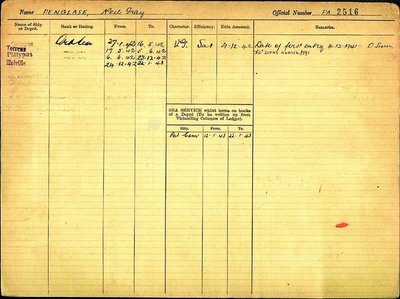 Name PENGLASE, Neil Gray Official Number PA 2516
Name of Ship or Depot. Rank or Rating. From. To. Character. Efficiency. Date Assessed. Remarks.
Ord Sea 27.1.42 16.5.42 V.G. Sat 31.12.42 Date of first entry
Torrens 17.5.42 5.6.42
Platypus 6.6.42 23.12.42
Melville 24.12.42 22.1.43
SEA SERVICE whilst borne on books
of a Depot (To be written up from
Victualling Columns of Ledger).
Ship. From. To.
12.1.43 22.1.43